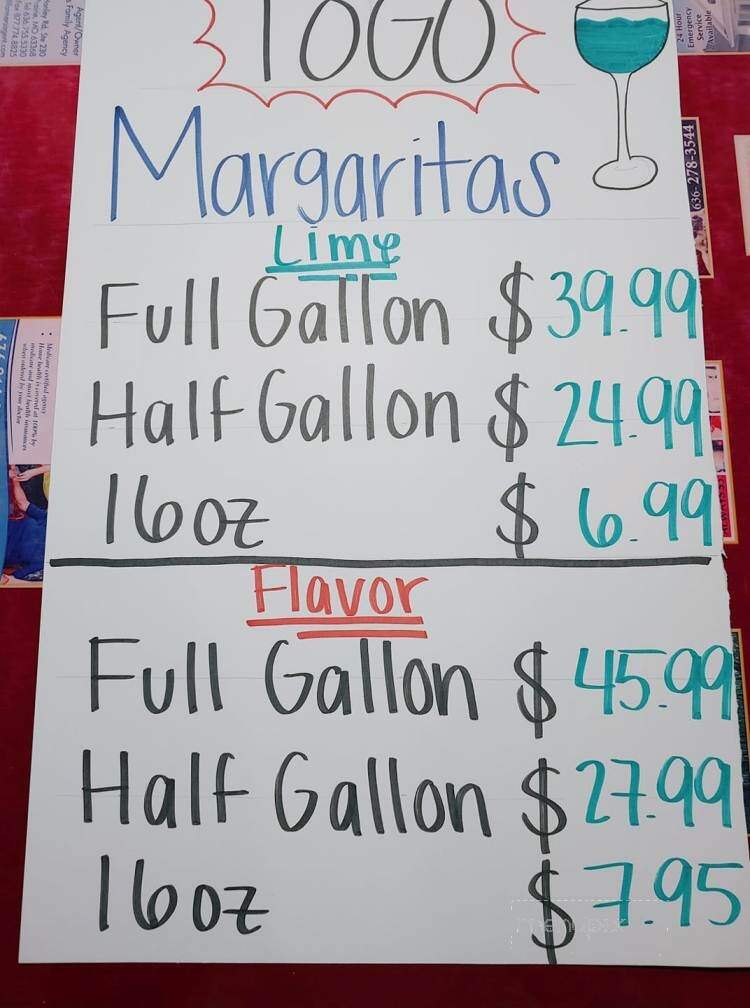 TOGO
Margaritas
Lime
Full Gallon $ 39.99
Half Gallon $ 24.99
16oz $ 6.99
Flavor
Full Gallon $ 45.99
Half Gallon $ 27.99
16oz $ 7.95
Agent/Owner
Family Agency
24 Hour
Emergency
Service
Available
636-278-3544
menupix